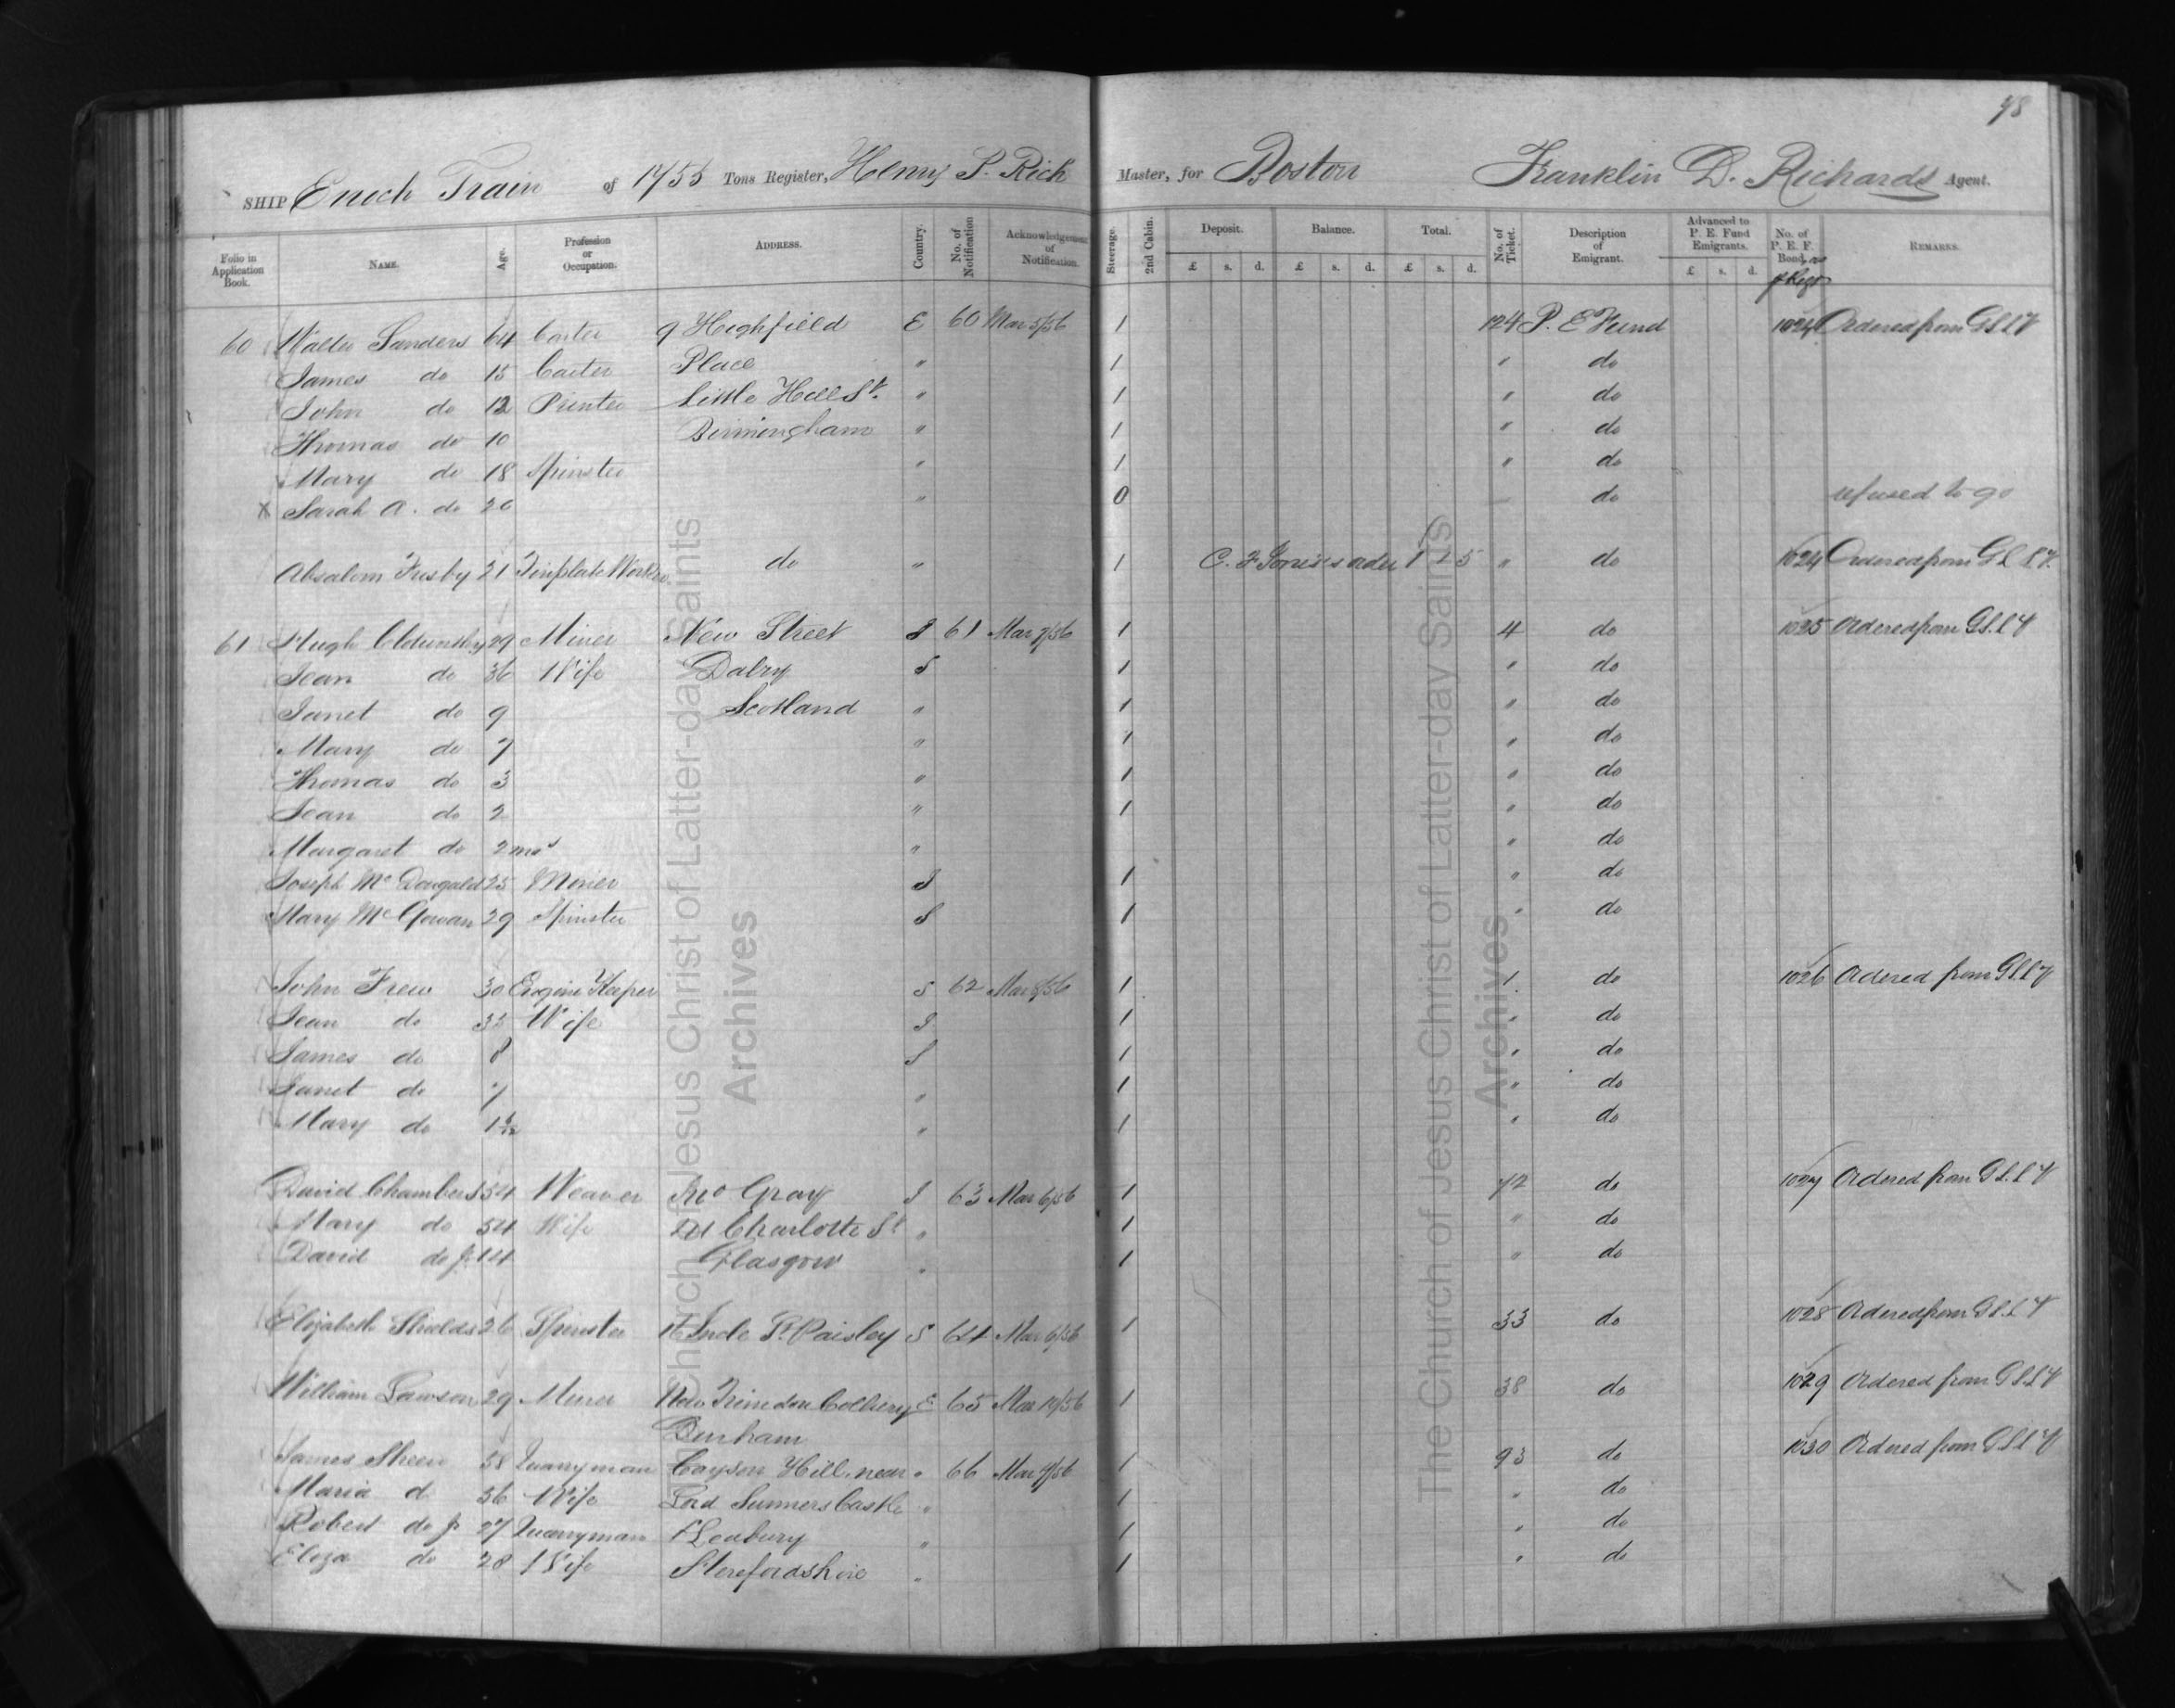 78
SHIP Enoch Train of 1755 Tons Register, Henry P. Rich Master, for Boston Franklin D. Richards Agent.
Folio in Application Book. Name. Age. Profession or Occupation. Address. Country. No. of Notification Acknowledgement of Notification. Steerage. 2nd Cabin. Deposit. £ s. d. Balance. £ s. d. Total. £ s. d. No. of Ticket. Description of Emigrant. Advanced to P. E. Fund Emigrants. £ s. d. No. of P. E. F. Bond, Remarks.
60 Walter Sanders 64 Caster 9 Highfield E 60 Mar 5/56 1 124 P. E Fund 1024 Ordered from GSLV
James do 15 Caster Place " 1 " do
John do 12 Printer Little Hill St. " 1 " do
Thomas do 10 Birmingham " 1 " do
Mary do 18 Spinster " 1 " do
X Sarah A. do 20 " 0 do refused to go
Absalom Frisby 21 Tinplate Worker do " 1 C. F Jones's order " do 1024 Ordered from G S L V.
61 Hugh 29 Miner New Street S 61 Mar 7/56 1 4 do 1025 Ordered from GS.L V
Jean do 36 Wife Dalry S 1 " do
Janet do 9 Scotland " 1 " do
Mary do 7 " 1 " do
Thomas do 3 " 1 " do
Jean do 2 " 1 " do
Margaret do 2 mos " " do
Joseph Mc Dougald 25 Miner S 1 " do
Mary Mc Gowan 29 Spinster S 1 " do
John Frew 30 Engine Keeper S 62 Mar 8/56 1 1 do 1026 Ordered from GSLV
Jean do 32 Wife S 1 " do
James do 8 S 1 " do
Janet do 7 " 1 " do
Mary do 1 " 1 " do
David Chambers 54 Weaver Jno Gray S 63 Mar 6/56 1 72 do 1027 Ordered from GS.L V
Mary do 54 Wife Charlotte St " 1 " do
David do Jr 14 Glasgow " 1 " do
Elizabeth Shields 26 Spinster 16 Incle St Paisley S 64 Mar 6/56 1 33 do 1028 Ordered from GS.L V
William Lawson 29 Miner New Trimdon Colliery E 65 Mar 10/56 1 38 do 1029 Ordered from GSLV
Durham
James Sheen 58 Quarryman Hill, near " 66 Mar 1 93 do 1030 Ordered from GSLV
Maria do 56 Wife Lord Summers Castle " 1 " do
Robert do Jr 27 Quarryman Leabury " 1 " do
Eliza do 28 Wife Herefordshire " 1 " do
The Church of Jesus Christ of Latter-day Saints
Archives
The Church of Jesus Christ of Latter-day Saints
Archives